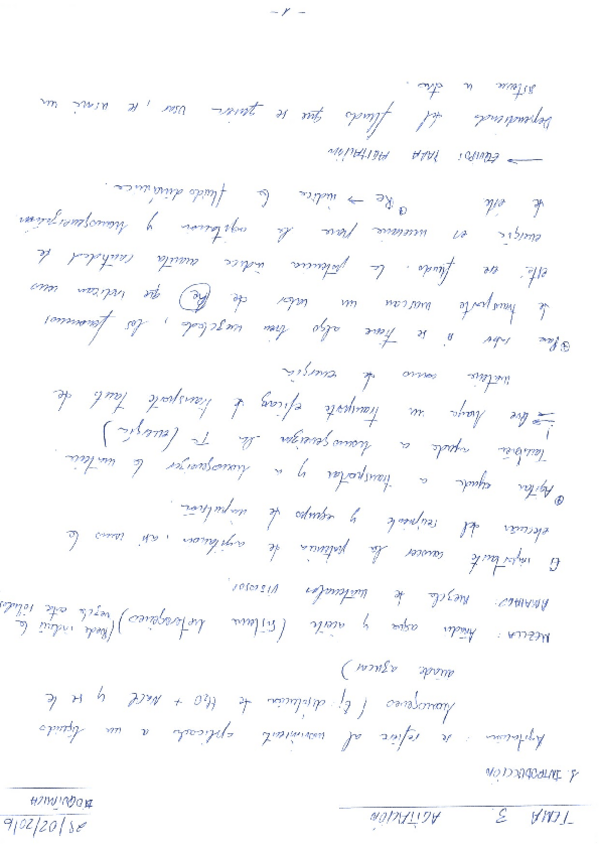 TEMA 3. AGITACIÓN
BIOQUÍMICA
1. INTRODUCCIÓN
Agitación: se refiere al movimiento aplicado a un líquido
homogéneo (Ej: disolución de H2O + NaCl y se le
añade azúcar)
MEZCLA: Añadir agua y aceite (sistema heterogéneo) (Puede incluir la mezcla entre sólidos
AMASADO: mezcla de materiales viscosos.
Es importante conocer la potencia de agitación, así como la
elección del recipiente y equipo de impulsión.
Agitar ayuda a transportar y a homogeneizar la materia.
También ayuda a homogeneizar la Tª (energía)
→ que haya un transporte eficaz de transporte tanto de
materia como de energía
Para saber si se tiene algo bien mezclado, los fenómenos
de transporte marcan un valor de Re que indican como
está ese fluido. La potencia indica cuanta cantidad de
energía es necesaria para la agitación y homogeneización
de éste
Re → indica la fluidodinámica.
→ EQUIPOS PARA AGITACIÓN
Dependiendo del fluido que se quiera usar, se usará un
sistema u otro.
- 1 -